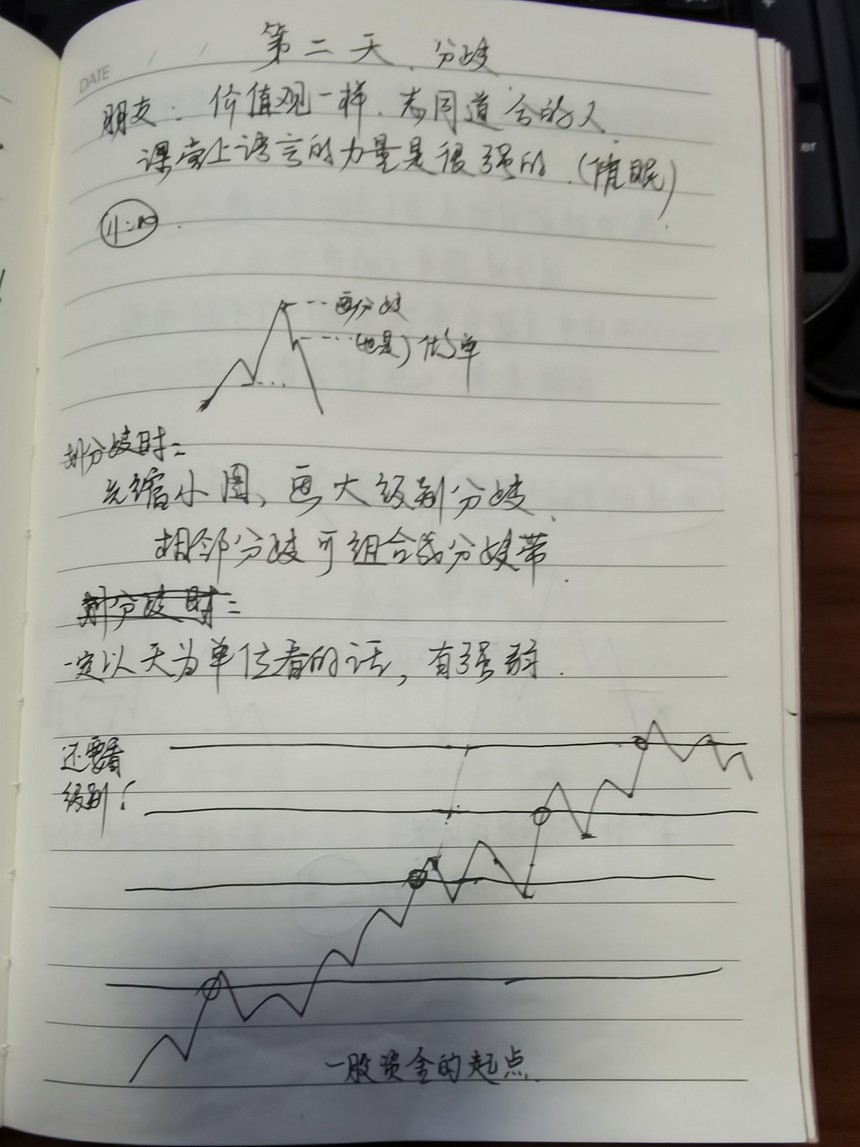 第二天、分歧
DATE / /
朋友：价值观一样、志同道合的人.
课堂上语言的力量是很强的.(催眠)
11:10.
画分歧
(也是)
划分歧时:
先缩小图、画大级别分歧.
相邻分歧可组合成分歧带.
划分歧时:
一定以天为单位看的话，有强弱.
还要看
级别!
一股资金的起点.